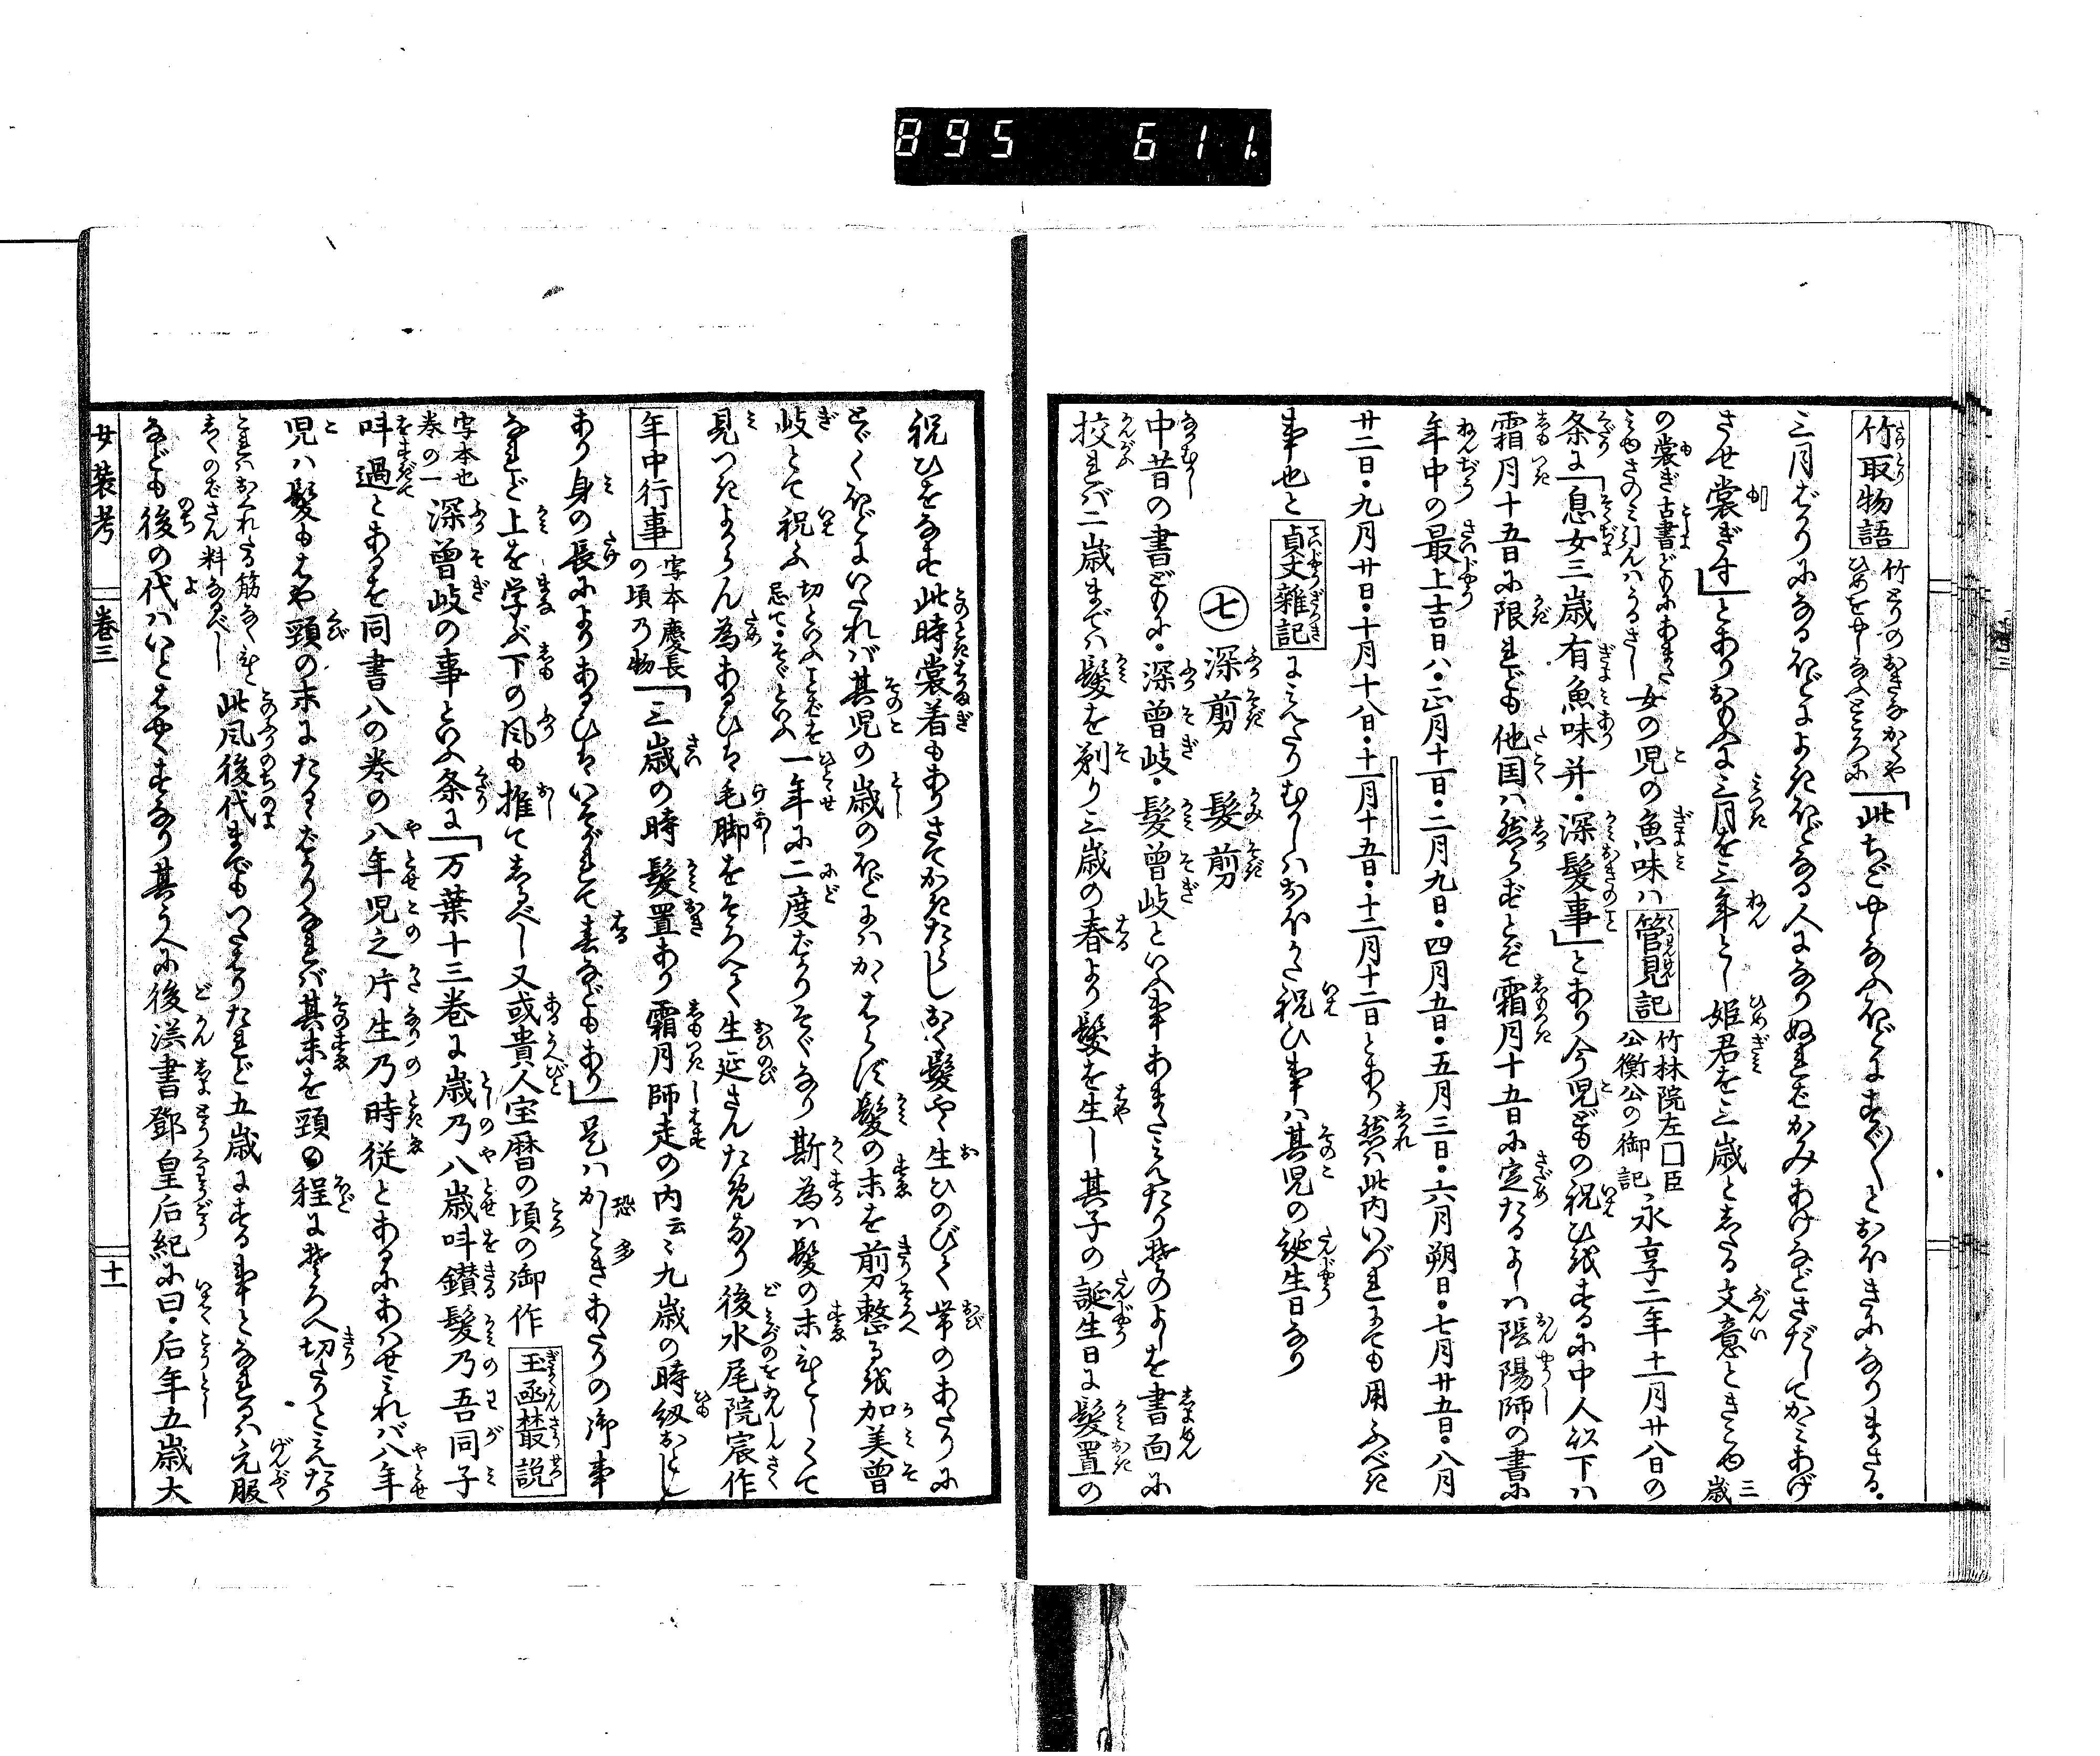 895 611.
竹取物語 竹とりのおきなかくやひめをやしなふところに「此ちごやしなふほどにすく〳〵とおほきになりまさる。
三月ばかりになるほどによきほどなる人になりぬればかみあげなどさだしてかみあげ
させ裳ぎす」とありおもふに三月を三年とし姫君を三歳としたる文意ときこゆ 三歳
の裳ぎ古書どもにあまたみゆさのみ引んはうるさし女の児の魚味は管見記 竹林院左囗臣公衡公の御記 永享二年十一月廿八日の
条に「息女三歳有魚味并・深髪事」とあり今児どもの祝ひ㧞するに中人以下は
霜月十五日に限れども他国は然らずとぞ霜月十五日に定たるよしは陰陽師の書に
年中の最上吉日ハ・正月十一日・二月九日・四月五日・五月三日・六月朔日・七月廿五日・八月
廿二日・九月廿日・十月十八日・十一月十五日・十二月十二日とあり然ハ此内いづれにても用ふべき
事也と貞丈雑記にみえたりむかしハおほくハ祝ひ事ハ其児の誕生日なり
七 深剪 髪剪
中昔の書どもに・深曾岐・髪曾岐といふ事あまたみえたり其のよしを書面に
挍れバ二歳までハ髪を剃り三歳の春より髪を生し其子の誕生日に髪置の
祝ひをなす此時裳着もありさてかきたらしおく髪やゝ生ひのびて帯のあたりに
とゞくほどにいたれバ其児の歳のほどにハかゝはらず髪の末を剪整るを加美曾
岐とて祝ふ 切といふことばを忌て・そぐといふ 一年に二度ばかりそぐなり斯為ハ髪の末ひとしくて
見つきよからん為あるひは毛脚をそろへて生延さんためなり後水尾院宸作
年中行事 写本慶長の頃乃物 「三歳の時髪置あり霜月師走の内云々九歳の時紐おとし
あり身の長によりあるひはいそがれて春などもあり」是ハかしこきあたりの御事
なれど上を学ぶ下の風も推てしるべし又或貴人宝暦の頃の御作 玉函叢説
写本也巻の一 深曾岐の事といふ条に「万葉十三巻に歳乃八歳叫鑚髪乃吾同子
叫過とあるを同書八の巻の八年児之片生乃時従とあるにあはせみれバ八年
児ハ髪もはや頸の末にたるばかりなれバ其末を頸の程にそろへ切たりとみえたり
これハおくれたる筋なくひとしくのばさん料なるべし此風後代までもつたはりたれど五歳にする事となれるハ元服
なども後の代ハいとはやくするなり其うへに後漢書鄧皇后紀に曰・后年五歳大
女装考 巻三 十一